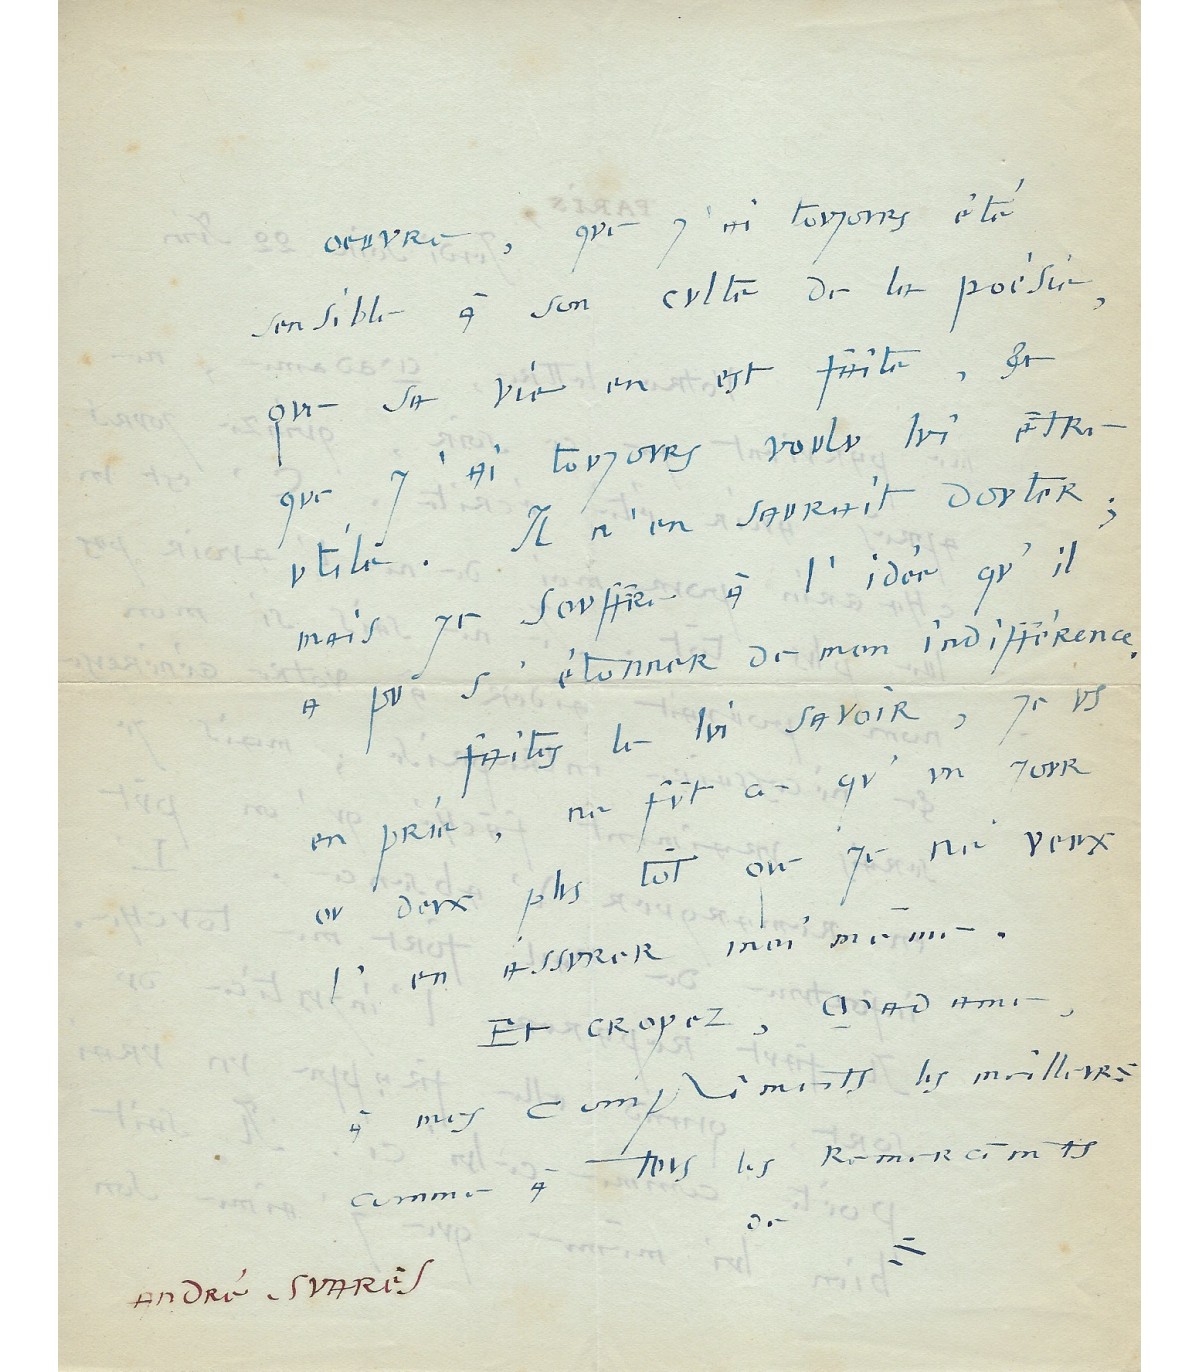 oeuvre, que j'ai toujours été
sensible à son culte de la poésie,
que sa vie en est faite, &
que j'ai toujours voulu lui être
utile. Il n'en saurait douter;
mais je souffre à l'idée qu'il
a pu s'étonner de mon indifférence.
faites le lui savoir, je vs
en prie, ne fût ce qu'un jour
ou deux plus tôt que je ne veux
l'en assurer moi même.
Et croyez, Madame,
à mes compliments les meilleurs
comme à tous les remercîments
de
ANDRÉ SUARÈS